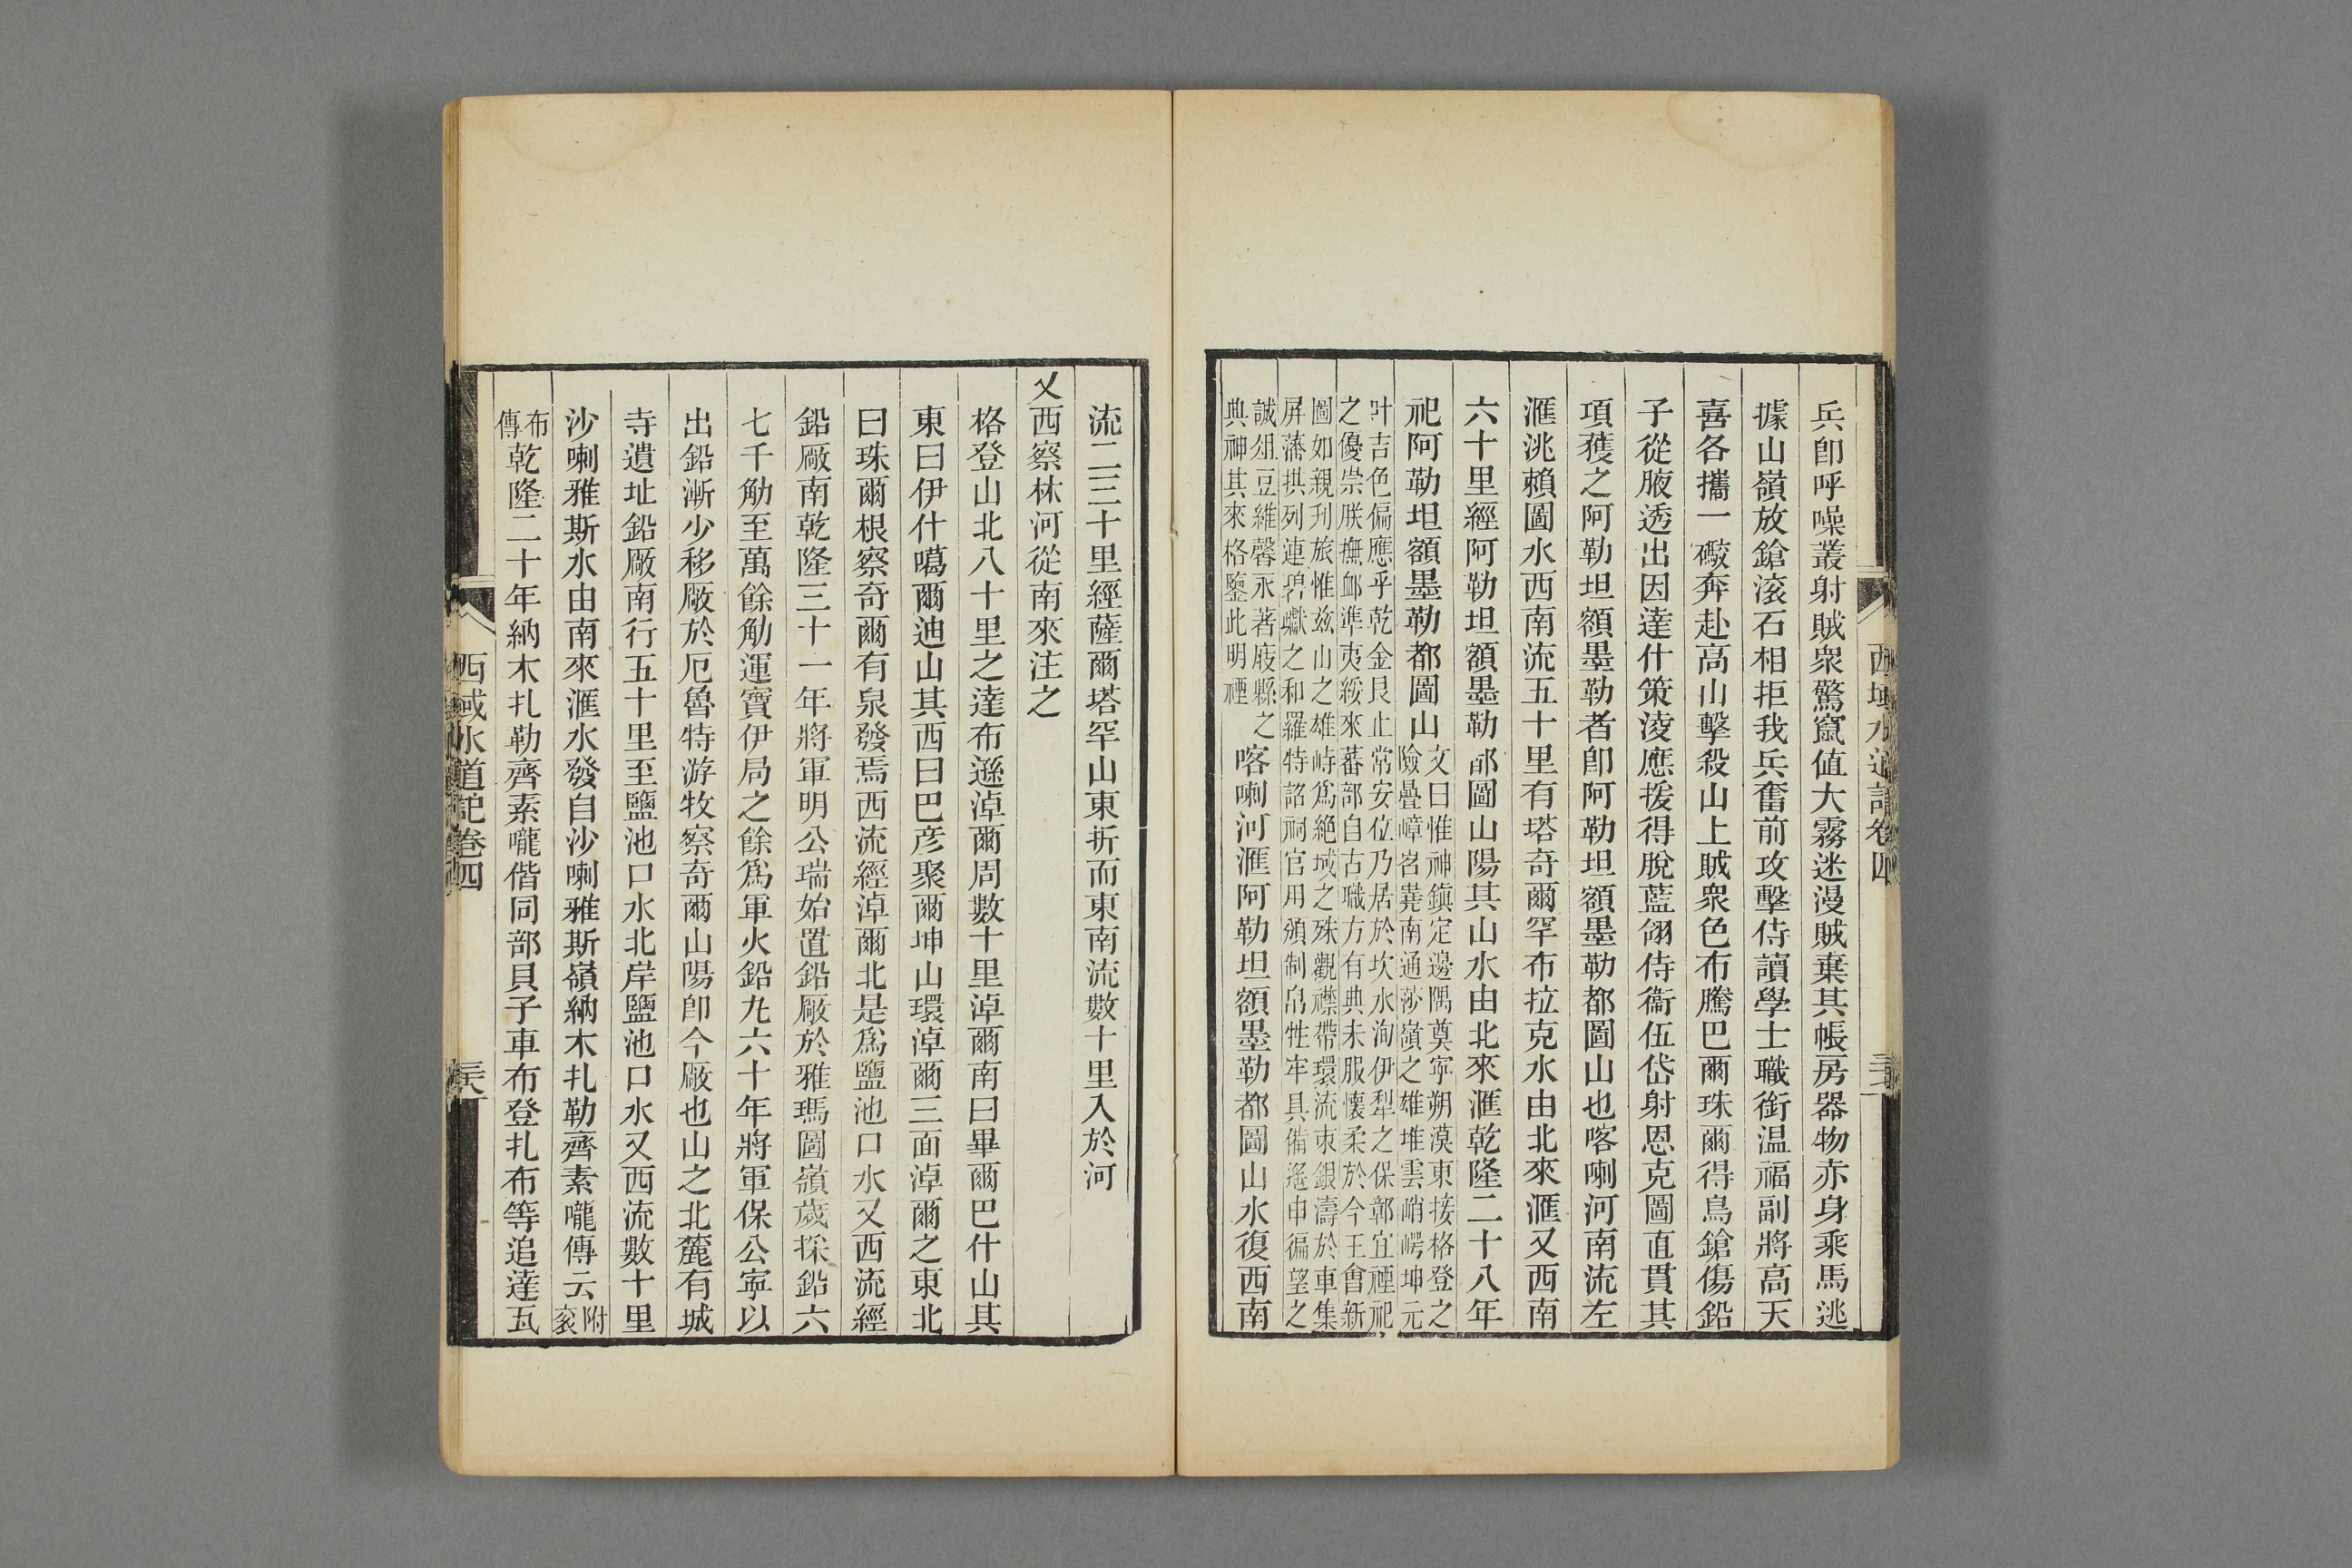 西域水道記卷四
兵卽呼噪叢射賊衆驚竄值大霧迷漫賊棄其帳房器物赤身乘馬逃
據山嶺放鎗滚石相拒我兵奮前攻擊侍讀學士職銜温福副將高天
喜各攜一礮奔赴高山擊殺山上賊衆色布騰巴爾珠爾得鳥鎗傷鉛
子從腋透出因達什策淩應援得脫藍翎侍衞伍岱射恩克圖直貫其
項獲之阿勒坦額墨勒者卽阿勒坦額墨勒都圖山也喀喇河南流左
滙洮賴圖水西南流五十里有塔奇爾罕布拉克水由北來滙又西南
六十里經阿勒坦額墨勒都圖山陽其山水由北來滙乾隆二十八年
祀阿勒坦額墨勒都圖山
文曰惟神鎮定邊隅奠寧朔漠東接格登之
險疊嶂岧嶤南通莎嶺之雄堆雲峭崿坤元
叶吉色偏應乎乾金艮止常安位乃居於坎水洵伊犁之保鄣宜禋祀
之優崇朕撫䘏準夷綏來蕃部自古職方有典未服懷柔於今王會新
圖如親刋旅惟玆山之雄峙爲絶域之殊觀襟帶環流束銀濤於車集
屏藩拱列連碧巘之和羅特詔祠官用頒制帛牲牢具備遙申徧望之
誠俎豆維馨永著庪縣之
典神其來格鑒此明禋
喀喇河滙阿勒坦額墨勒都圖山水復西南
流二三十里經薩爾塔罕山東折而東南流數十里入於河
又西察林河從南來注之
格登山北八十里之達布遜淖爾周數十里淖爾南曰畢爾巴什山其
東曰伊什噶爾迪山其西曰巴彦聚爾坤山環淖爾三面淖爾之東北
曰珠爾根察奇爾有泉發焉西流經淖爾北是爲鹽池口水又西流經
鉛厰南乾隆三十一年將軍明公瑞始置鉛厰於雅瑪圖嶺歲採鉛六
七千觔至萬餘觔運寶伊局之餘爲軍火鉛九六十年將軍保公寧以
出鉛漸少移厰於厄魯特游牧察奇爾山陽卽今厰也山之北麓有城
寺遺址鉛厰南行五十里至鹽池口水北岸鹽池口水又西流數十里
沙喇雅斯水由南來滙水發自沙喇雅斯嶺納木扎勒齊素嚨傳云
附
衮
布
傳
乾隆二十年納木扎勒齊素嚨偕同部貝子車布登扎布等追達瓦
西域水道記卷四